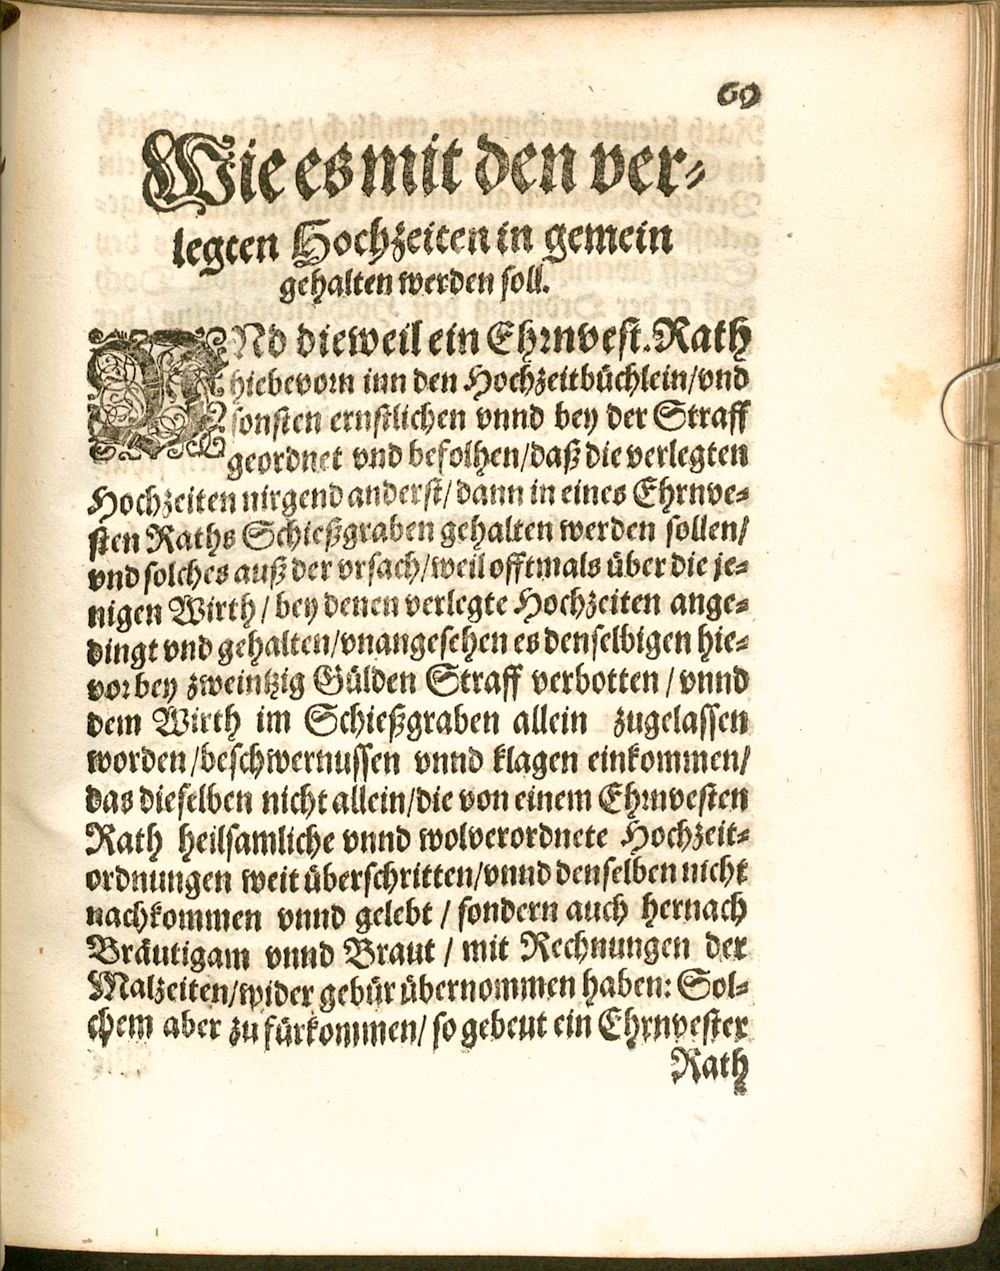 69
Wie es mit den ver-
legten Hochzeiten in gemein
gehalten werden soll.
VNd dieweil ein Ehrnvest. Rath
hiebevorn inn den Hochzeitbüchlein/vnd
sonsten ernstlichen vnnd bey der Straff
geordnet vnd befolhen/daß die verlegten
Hochzeiten nirgend anderst/ dann in eines Ehrnve-
sten Raths Schießgraben gehalten werden sollen/
vnd solches auß der vrsach/weil offtmals über die je-
nigen Wirth / bey denen verlegte Hochzeiten ange-
dingt vnd gehalten/vnangesehen es denselbigen hie-
vor bey zweintzig Gülden Straff verbotten / vnnd
dem Wirth im Schießgraben allein zugelassen
worden /beschwernussen vnnd klagen einkommen/
das dieselben nicht allein/die von einem Ehrnvesten
Rath heilsamliche vnnd wolverordnete Hochzeit-
ordnungen weit überschritten/vnnd denselben nicht
nachkommen vnnd gelebt / sondern auch hernach
Bräutigam vnnd Braut / mit Rechnungen der
Malzeiten/wider gebür übernommen haben: Sol-
chem aber zu fürkommen/ so gebeut ein Ehrnvester
Rath